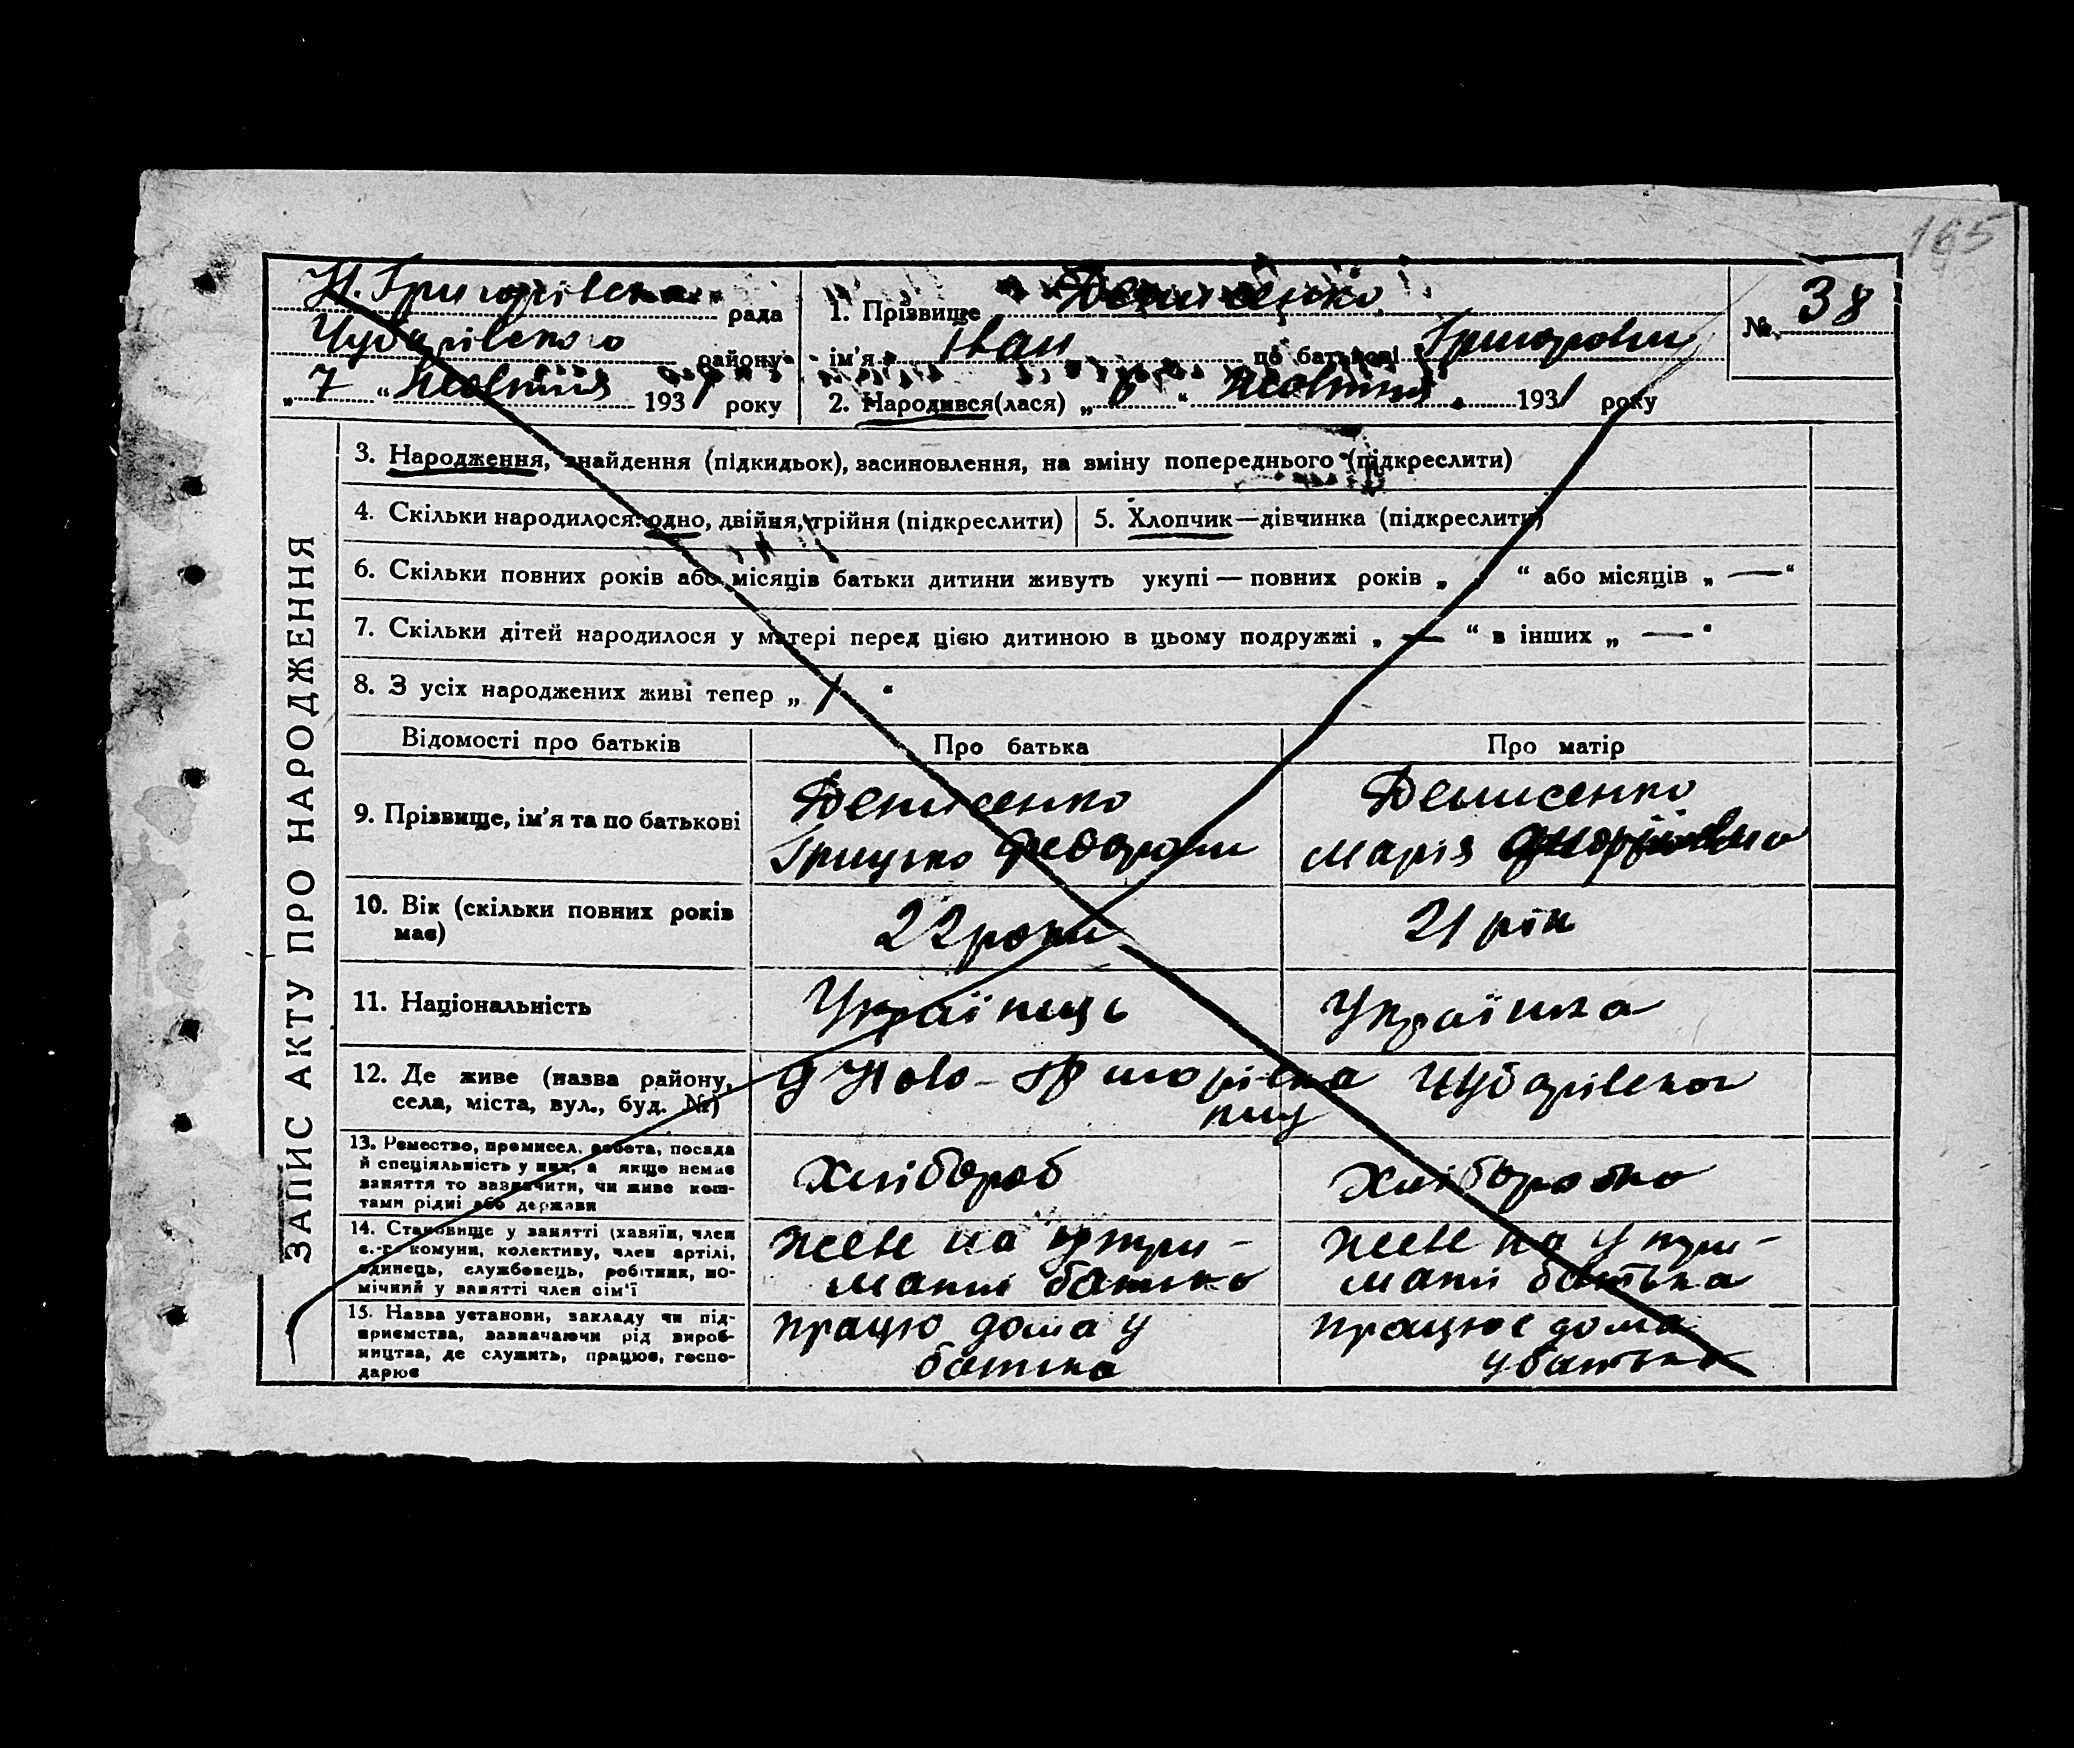 165
Н. Григорівська рада
Чубарівского району
„ 7 “ Жовтня 1931 року
1. Прізвище Денисенко
ім'я Іван по батькові Григорович
2. Народився(лася) „ 6 “ Жовтня 1931 року
№ 38
ЗАПИС АКТУ ПРО НАРОДЖЕННЯ
3. Народження, знайдення (підкидьок), засиновлення, на зміну попереднього (підкреслити)
4. Скільки народилося: одно, двійня, трійня (підкреслити)
5. Хлопчик—дівчинка (підкреслити)
6. Скільки повних років або місяців батьки дитини живуть укупі — повних років „ “ або місяців „ — “
7. Скільки дітей народилося у матері перед цією дитиною в цьому подружжі „ — “ в інших „ — “
8. З усіх народжених живі тепер „ 1 “
Відомості про батьків Про батька Про матір
9. Прізвище, ім'я та по батькові
Денисенко
Грицько Федорович
Денисенко
Марія
10. Вік (скільки повних років
має)
22 роки
21 рік
11. Національність
Українець
Українка
12. Де живе (назва району,
села, міста, вул., буд. №)
Ново-Григорівка Чубарівског
13. Ремество, промисел, робота, посада
й спеціяльність у них, а якщо немає
заняття то зазначити, чи живе кош-
тами рідні або держави
Хлібороб
Хліборобка
14. Становище у занятті (хазяїн, член
с.-г. комуни, колективу, член артілі,
одинець, службовець, робітник, по-
мічний у занятті член сім'ї
живе на утри-
манні батька
живе на утри-
манні батька
15. Назва установи, закладу чи під-
приємства, зазначаючи рід вироб-
ництва, де служить, працює, госпо-
дарює
працює дома у
батька
працює дома
у батька